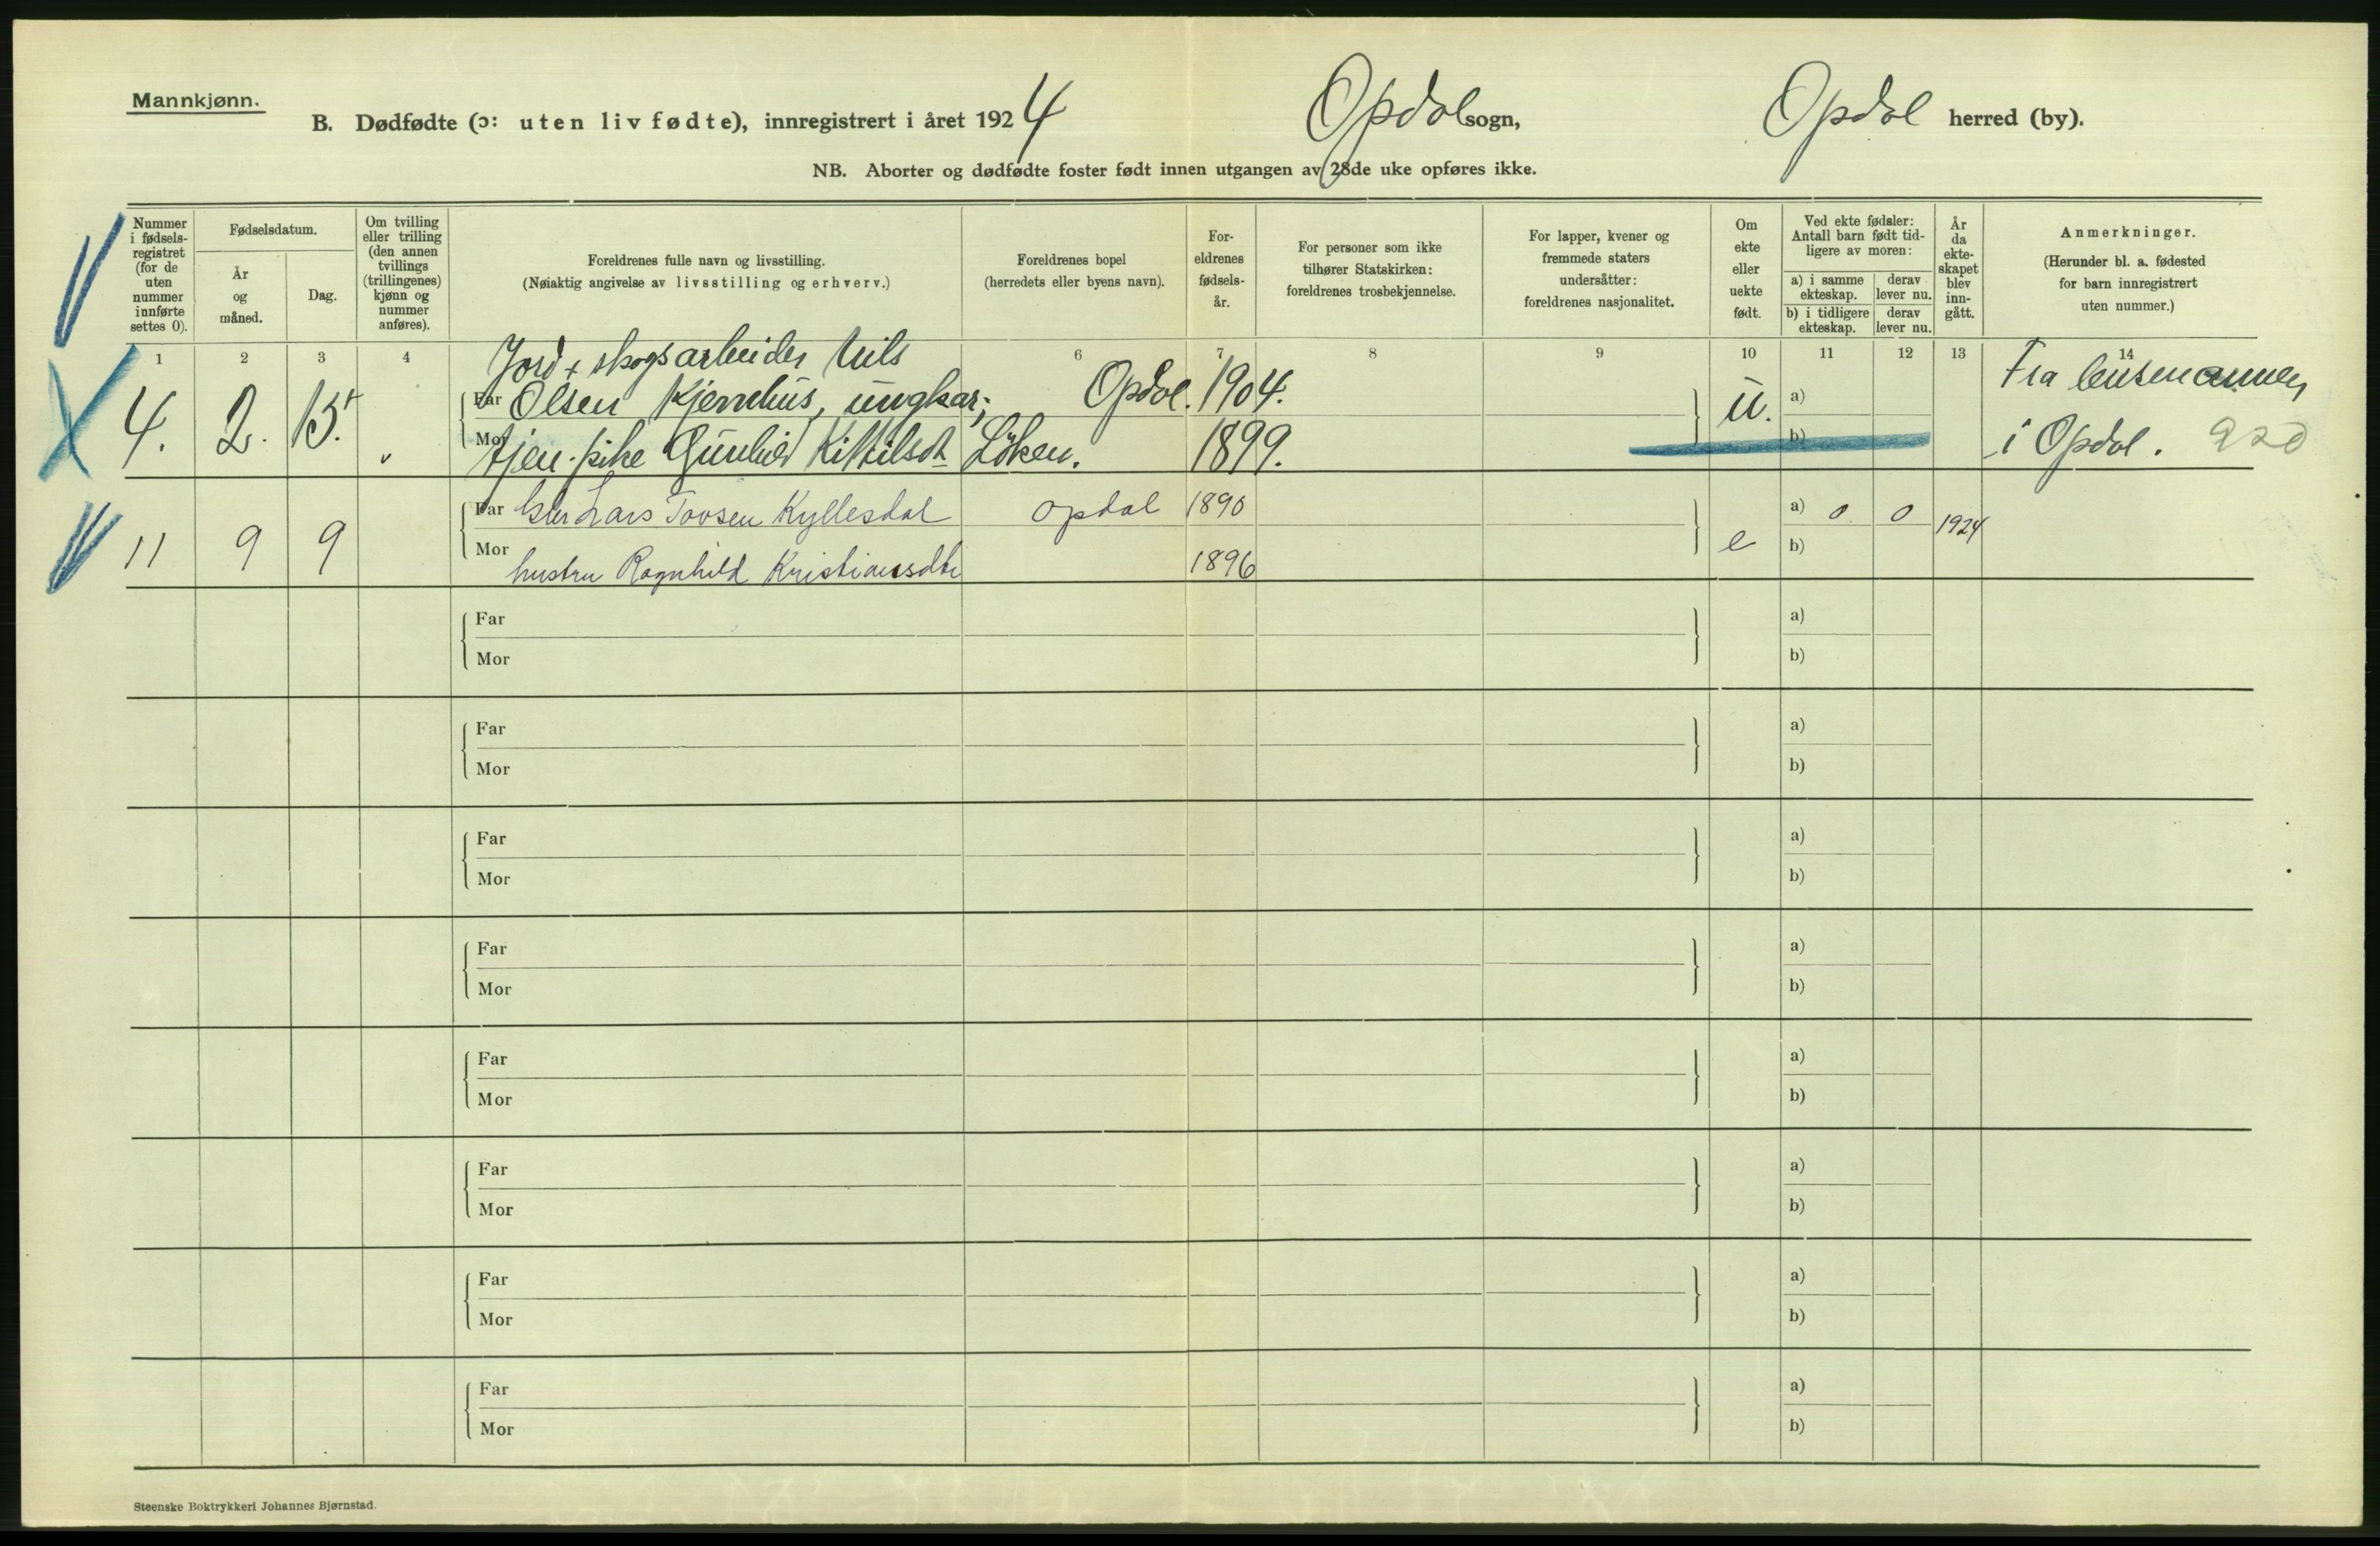 Mannkjønn.
B. Dødfødte (ɔ: uten liv fødte), innregistrert i året 1924 Opdal sogn, Opdal herred (by).
NB. Aborter og dødfødte foster født innen utgangen av 28de uke opføres ikke.
Nummer i fødselsregistret (for de uten nummer innførte settes 0).
Fødselsdatum.
År og måned.
Dag.
Om tvilling eller trilling (den annen tvillings (trillingenes) kjønn og nummer anføres).
Foreldrenes fulle navn og livsstilling.
(Nøiaktig angivelse av livsstilling og erhverv.)
Foreldrenes bopel
(herredets eller byens navn).
Foreldrenes fødselsår.
For personer som ikke tilhører Statskirken: foreldrenes trosbekjennelse.
For lapper, kvener og fremmede staters undersåtter: foreldrenes nasjonalitet.
Om ekte eller uekte født.
Ved ekte fødsler: Antall barn født tidligere av moren:
a) i samme ekteskap. derav lever nu.
b) i tidligere ekteskap. derav lever nu.
År da ekteskapet blev inngått.
Anmerkninger.
(Herunder bl. a. fødested for barn innregistrert uten nummer.)
1 2 3 4 6 7 8 9 10 11 12 13 14
Jord + skogsarbeider Nils
4. 2. 15. Far Olsen Kjemhus, ungkar; Opdal. 1904. u. a) Fra lensmannen
Mor tjen. pike Gunhild Kittilsdt Löken. 1899. b) i Opdal. 220
11 9 9 Far Lars Tovsen Kyllesdal Opdal 1890 e a) 0 0 1924
Mor hustru Ragnhild Kristiansdtr 1896 b)
Far a)
Mor b)
Far a)
Mor b)
Far a)
Mor b)
Far a)
Mor b)
Far a)
Mor b)
Far a)
Mor b)
Far a)
Mor b)
Far a)
Mor b)
Steenske Boktrykkeri Johannes Bjørnstad.